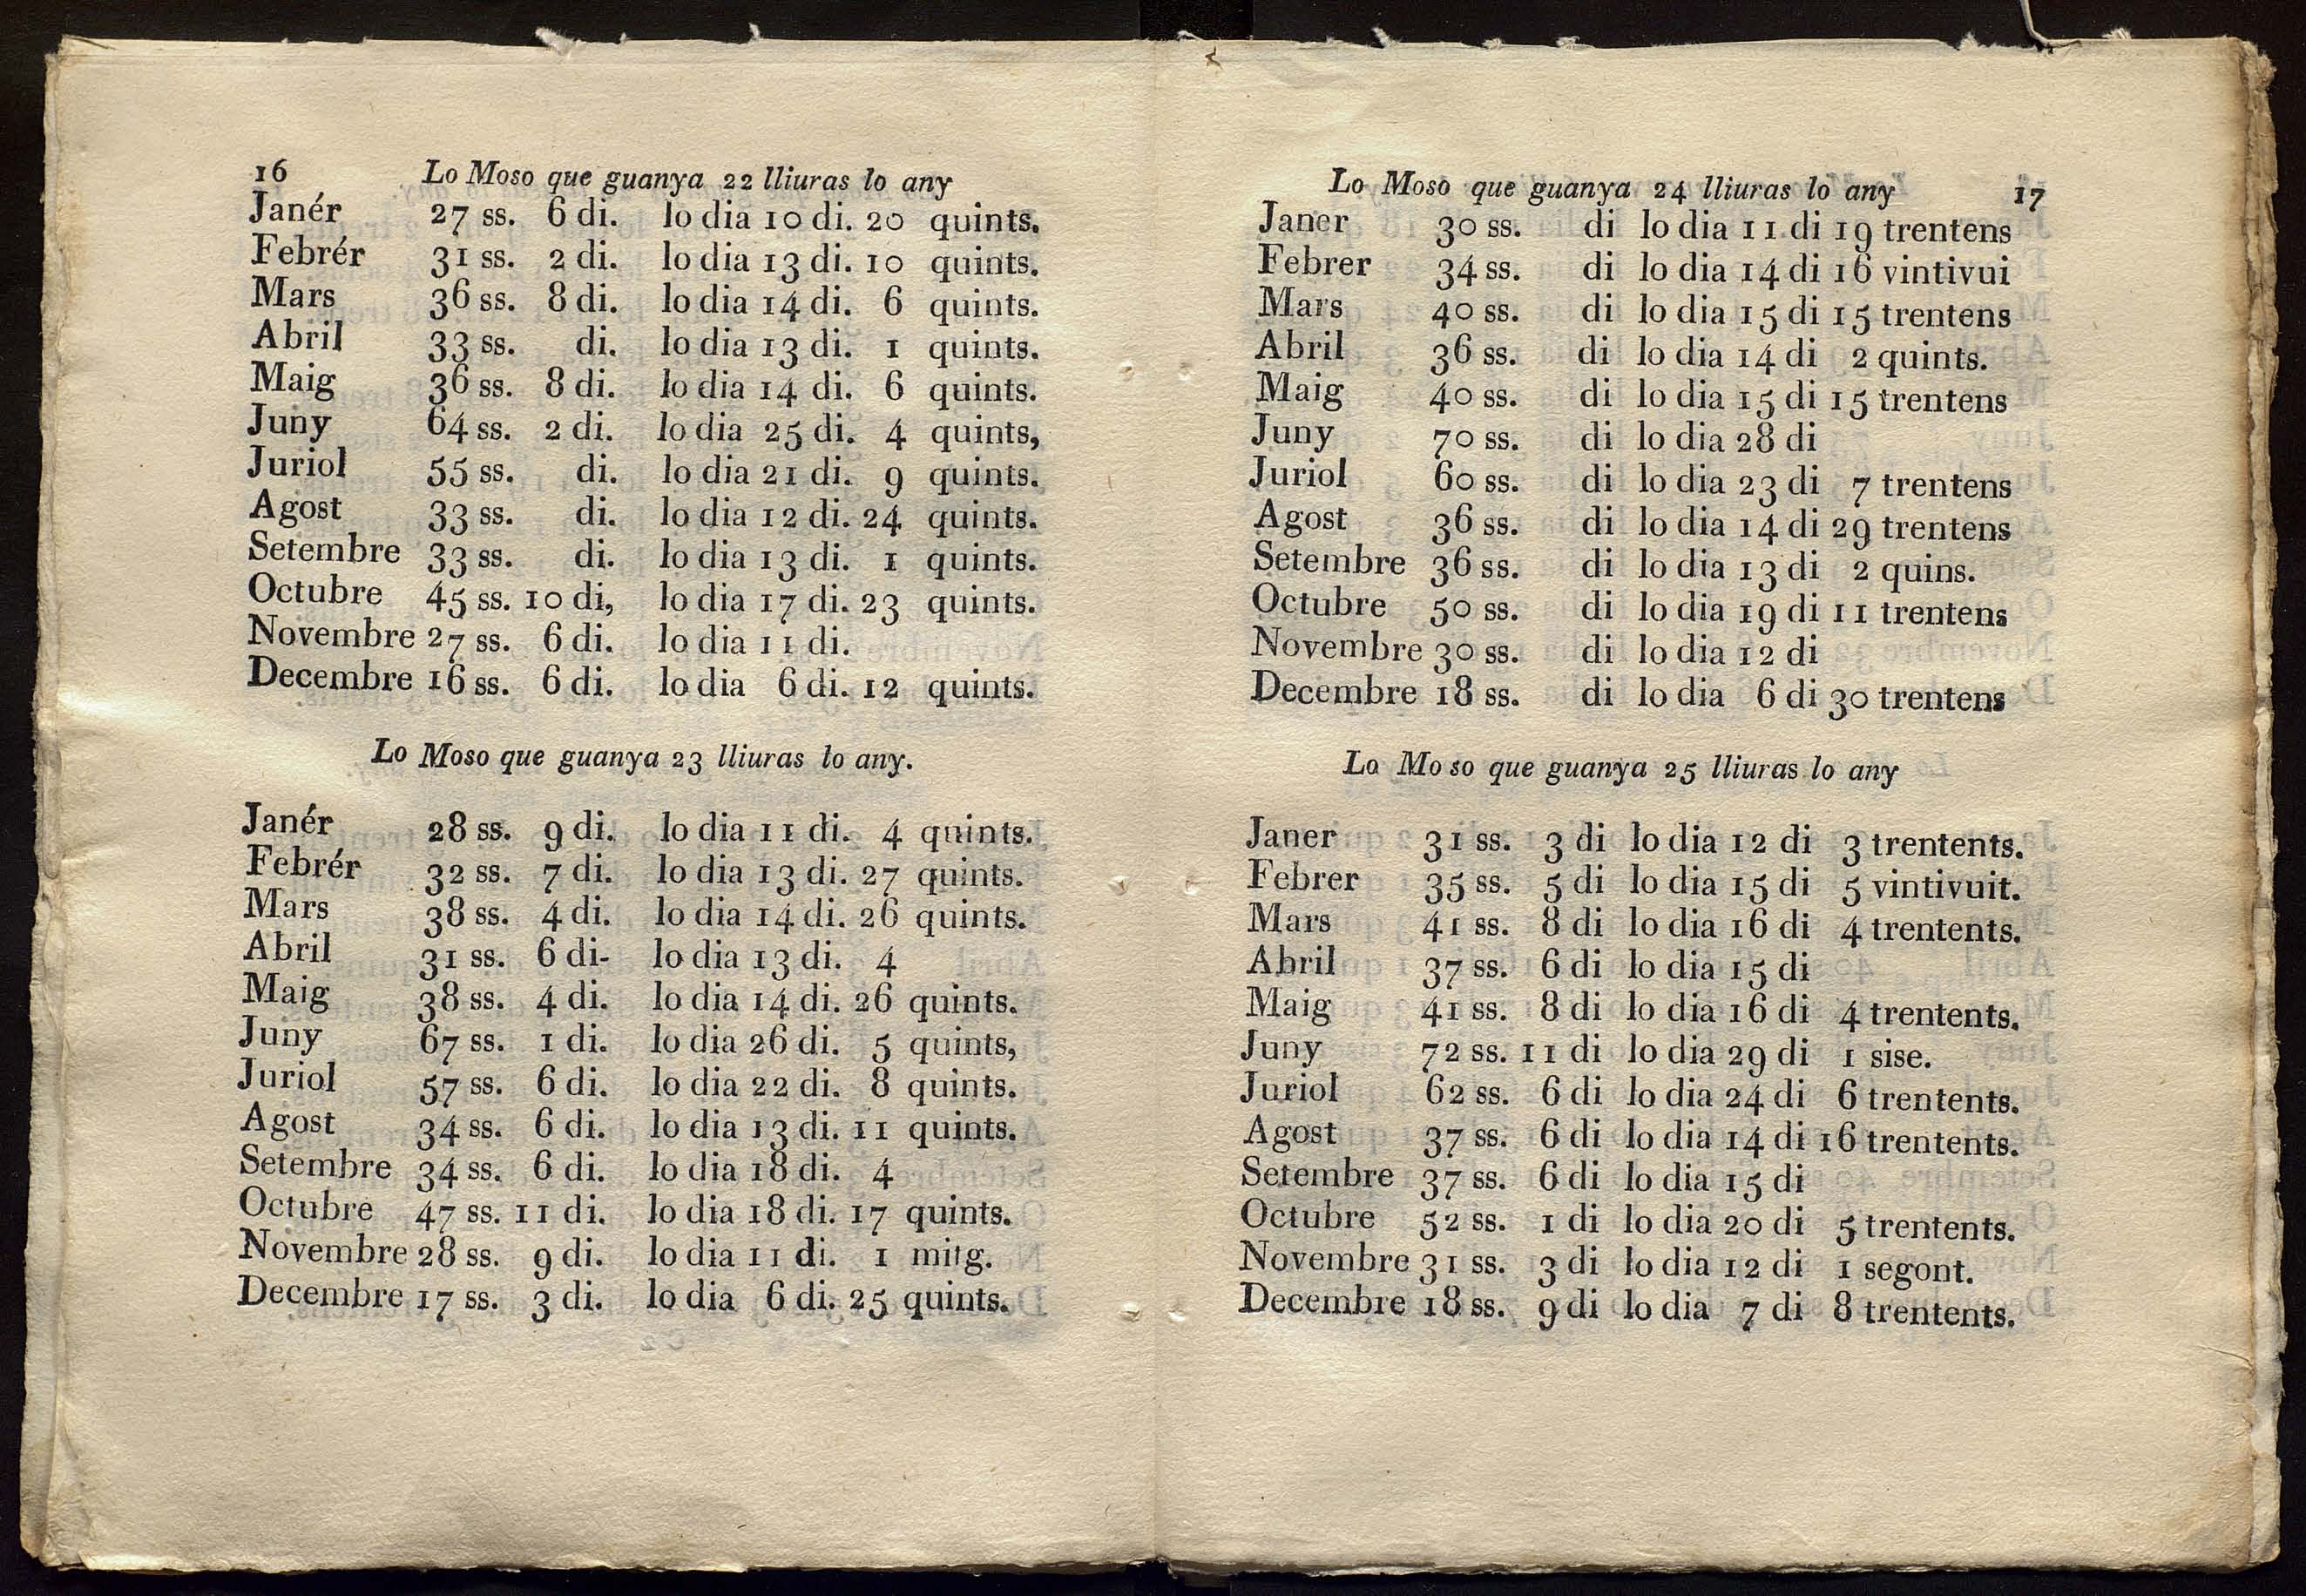 16 Lo Moso que guanya 22 lliuras lo any
Janér 27 ss. 6 di. lo dia 10 di. 20 quints.
Febrér 31 ss. 2 di. lo dia 13 di. 10 quints.
Mars 36 ss. 8 di. lo dia 14 di. 6 quints.
Abril 33 ss. di. lo dia 13 di. 1 quints.
Maig 36 ss. 8 di. lo dia 14 di. 6 quints.
Juny 64 ss. 2 di. lo dia 25 di. 4 quints,
Juriol 55 ss. di. lo dia 21 di. 9 quints.
Agost 33 ss. di. lo dia 12 di. 24 quints.
Setembre 33 ss. di. lo dia 13 di. 1 quints.
Octubre 45 ss. 10 di, lo dia 17 di. 23 quints.
Novembre 27 ss. 6 di. lo dia 11 di.
Decembre 16 ss. 6 di. lo dia 6 di. 12 quints.
Lo Moso que guanya 23 lliuras lo any.
Janér 28 ss. 9 di. lo dia 11 di. 4 quints.
Febrér 32 ss. 7 di. lo dia 13 di. 27 quints.
Mars 38 ss. 4 di. lo dia 14 di. 26 quints.
Abril 31 ss. 6 di- lo dia 13 di. 4
Maig 38 ss. 4 di. lo dia 14 di. 26 quints.
Juny 67 ss. 1 di. lo dia 26 di. 5 quints,
Juriol 57 ss. 6 di. lo dia 22 di. 8 quints.
Agost 34 ss. 6 di. lo dia 13 di. 11 quints.
Setembre 34 ss. 6 di. lo dia 18 di. 4
Octubre 47 ss. 11 di. lo dia 18 di. 17 quints.
Novembre 28 ss. 9 di. lo dia 11 di. 1 mitg.
Decembre 17 ss. 3 di. lo dia 6 di. 25 quints.
Lo Moso que guanya 24 lliuras lo any 17
Janer 30 ss. di lo dia 11 di 19 trentens
Febrer 34 ss. di lo dia 14 di 16 vintivui
Mars 40 ss. di lo dia 15 di 15 trentens
Abril 36 ss. di lo dia 14 di 2 quints.
Maig 40 ss. di lo dia 15 di 15 trentens
Juny 70 ss. di lo dia 28 di
Juriol 60 ss. di lo dia 23 di 7 trentens
Agost 36 ss. di lo dia 14 di 29 trentens
Setembre 36 ss. di lo dia 13 di 2 quins.
Octubre 50 ss. di lo dia 19 di 11 trentens
Novembre 30 ss. di lo dia 12 di
Decembre 18 ss. di lo dia 6 di 30 trentens
Lo Moso que guanya 25 lliuras lo any
Janer 31 ss. 3 di lo dia 12 di 3 trentents.
Febrer 35 ss. 5 di lo dia 15 di 5 vintivuit.
Mars 41 ss. 8 di lo dia 16 di 4 trentents.
Abril 37 ss. 6 di lo dia 15 di
Maig 41 ss. 8 di lo dia 16 di 4 trentents.
Juny 72 ss. 11 di lo dia 29 di 1 sise.
Juriol 62 ss. 6 di lo dia 24 di 6 trentents.
Agost 37 ss. 6 di lo dia 14 di 16 trentents.
Setembre 37 ss. 6 di lo dia 15 di
Octubre 52 ss. 1 di lo dia 20 di 5 trentents.
Novembre 31 ss. 3 di lo dia 12 di 1 segont.
Decembre 18 ss. 9 di lo dia 7 di 8 trentents.